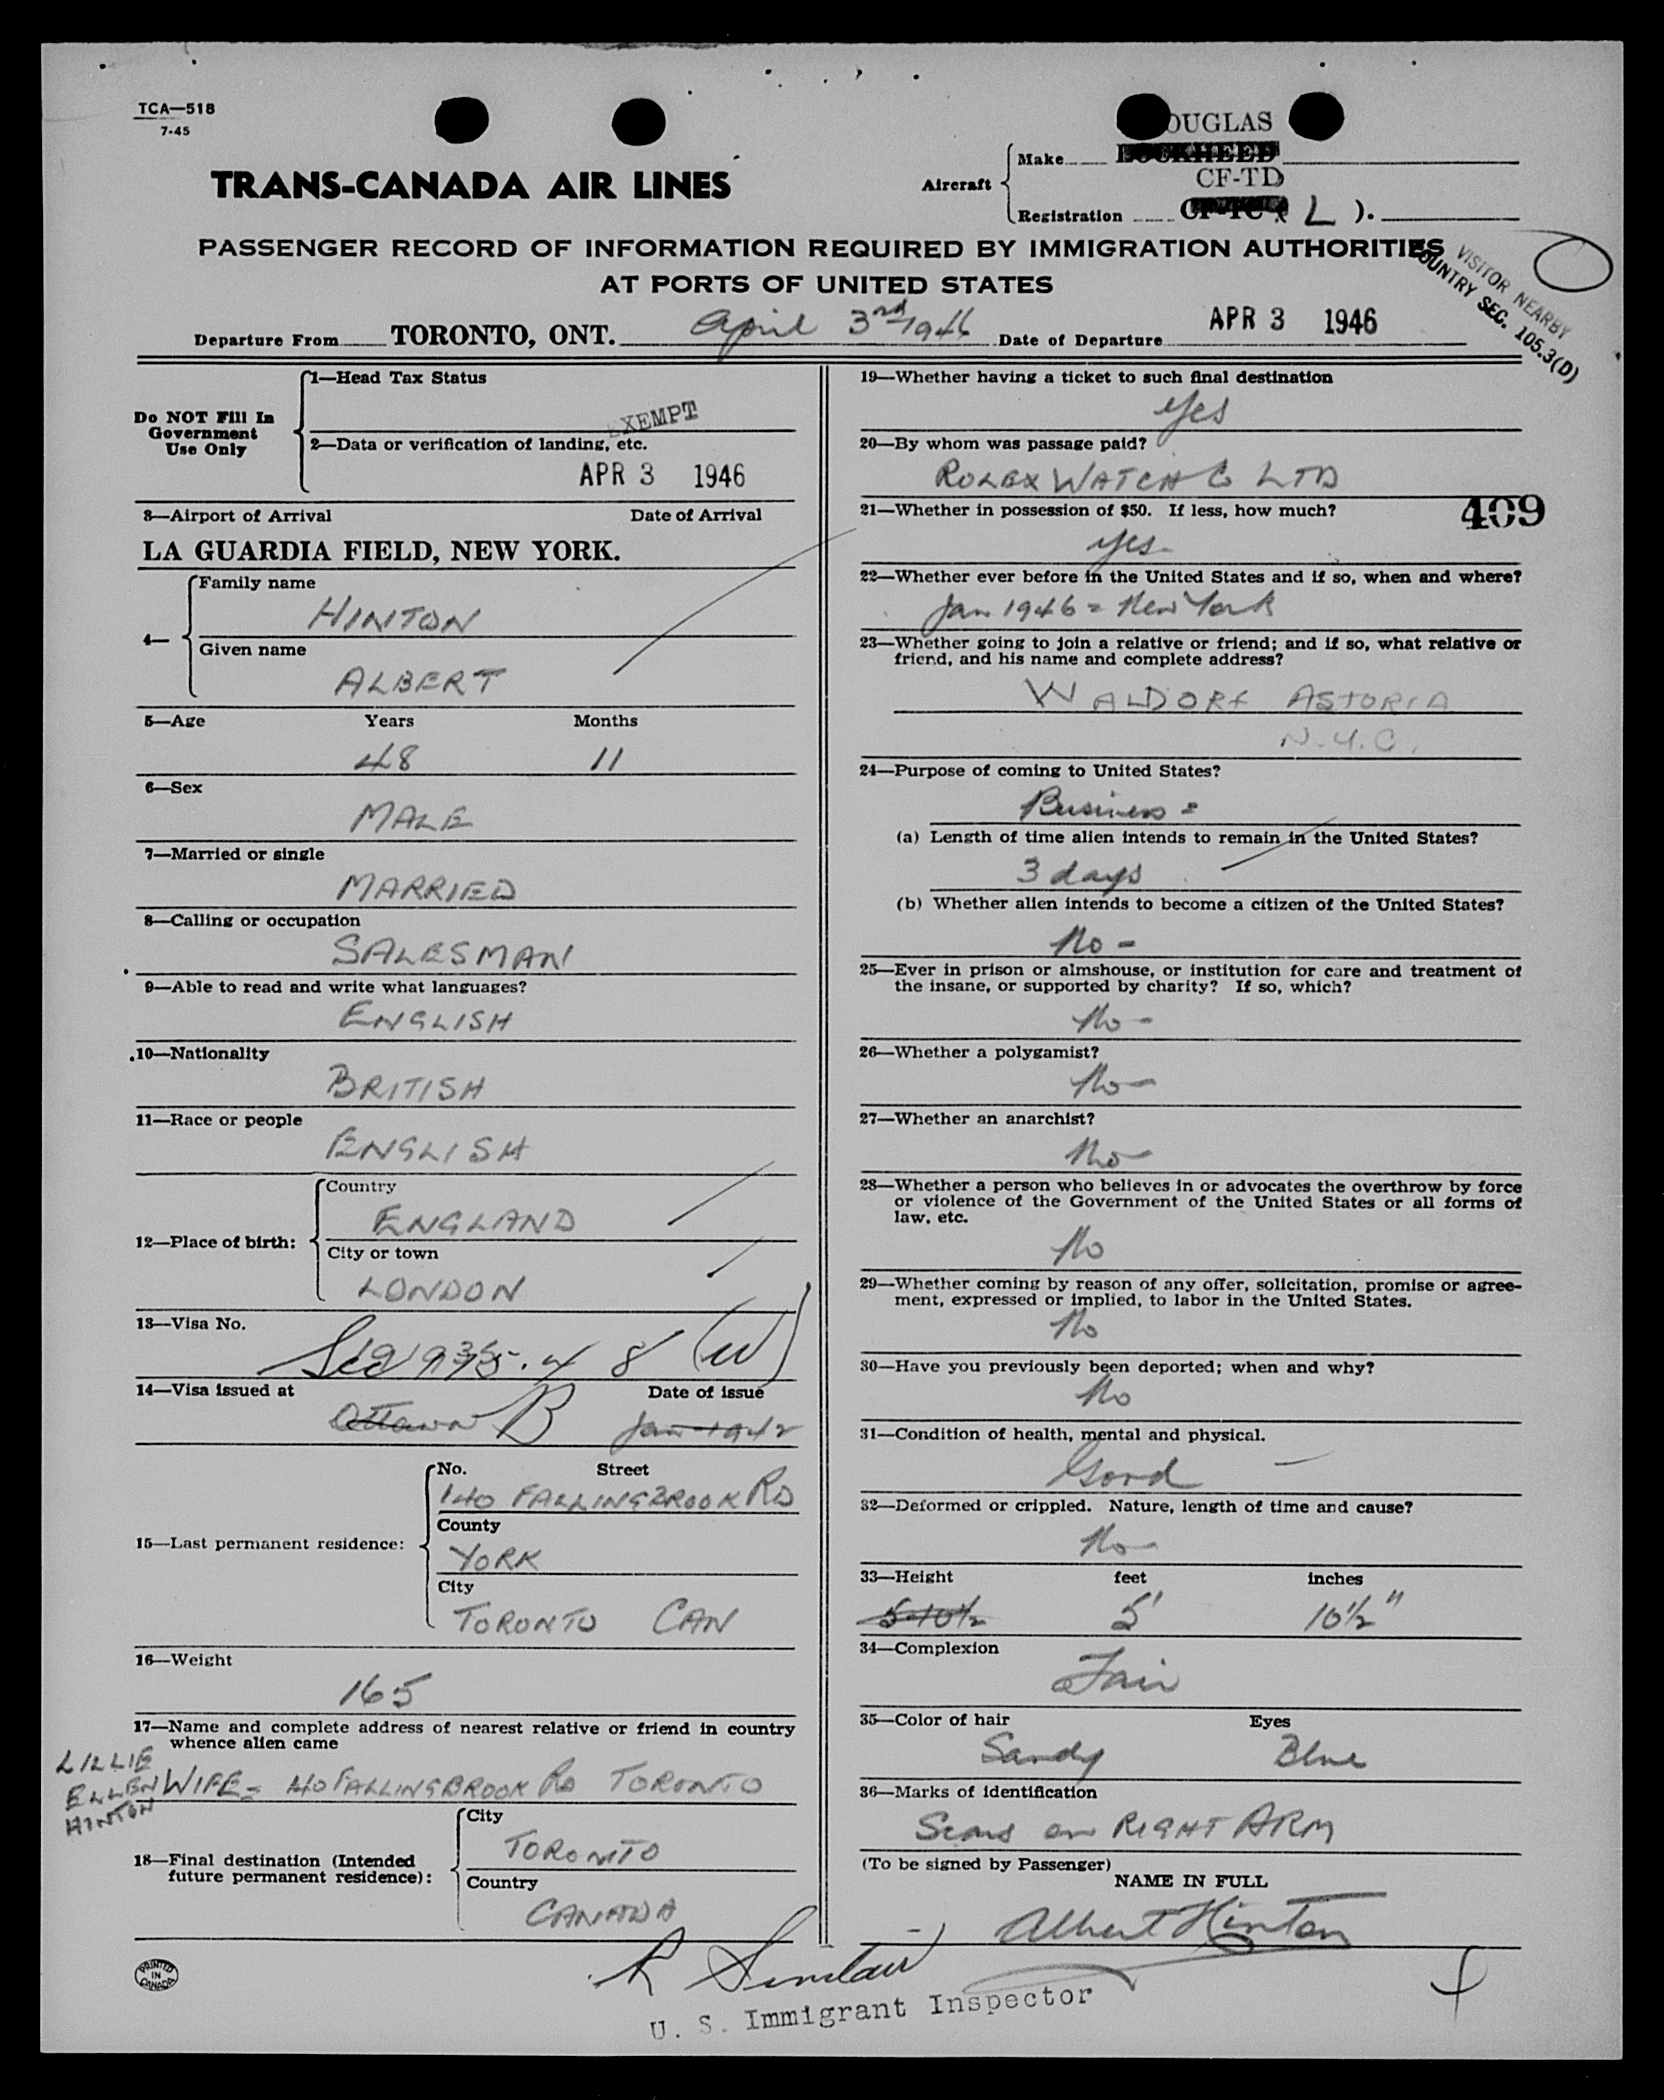 TCA—518
7-45
OUGLAS
TRANS-CANADA AIR LINES
Aircraft
Make LOCKHEED
CF-TD
Registration CF-TC L ).
PASSENGER RECORD OF INFORMATION REQUIRED BY IMMIGRATION AUTHORITIES
AT PORTS OF UNITED STATES
VISITOR NEARBY
COUNTRY SEC. 105.3(D)
Departure From TORONTO, ONT. April 3rd 1946 Date of Departure APR 3 1946
Do NOT Fill In
Government
Use Only
1—Head Tax Status
EXEMPT
2—Data or verification of landing, etc.
APR 3 1946
3—Airport of Arrival Date of Arrival
LA GUARDIA FIELD, NEW YORK.
4—
Family name
HINTON
Given name
ALBERT
5—Age Years Months
48 11
6—Sex
MALE
7—Married or single
MARRIED
8—Calling or occupation
SALESMAN
9—Able to read and write what languages?
ENGLISH
10—Nationality
BRITISH
11—Race or people
ENGLISH
12—Place of birth:
Country
ENGLAND
City or town
LONDON
13—Visa No.
8 (W)
14—Visa issued at Date of issue
Ottawa B Jan 1942
15—Last permanent residence:
No. Street
140 FALLINGBROOK RD
County
YORK
City
TORONTO CAN
16—Weight
165
17—Name and complete address of nearest relative or friend in country
whence alien came
LILLIE
ELLEN WIFE = 140 FALLINGBROOK RD TORONTO
HINTON
18—Final destination (Intended
future permanent residence):
City
TORONTO
Country
CANADA
PRINTED
IN
CANADA
19—Whether having a ticket to such final destination
yes
20—By whom was passage paid?
ROLEX WATCH Co LTD
409
21—Whether in possession of $50. If less, how much?
yes
22—Whether ever before in the United States and if so, when and where?
Jan 1946 = New York
23—Whether going to join a relative or friend; and if so, what relative or
friend, and his name and complete address?
WALDORF ASTORIA
N.Y.C.
24—Purpose of coming to United States?
Business =
(a) Length of time alien intends to remain in the United States?
3 days
(b) Whether alien intends to become a citizen of the United States?
No -
25—Ever in prison or almshouse, or institution for care and treatment of
the insane, or supported by charity? If so, which?
No -
26—Whether a polygamist?
No -
27—Whether an anarchist?
No
28—Whether a person who believes in or advocates the overthrow by force
or violence of the Government of the United States or all forms of
law, etc.
No
29—Whether coming by reason of any offer, solicitation, promise or agree-
ment, expressed or implied, to labor in the United States.
No
30—Have you previously been deported; when and why?
No
31—Condition of health, mental and physical.
Good
32—Deformed or crippled. Nature, length of time and cause?
No
33—Height feet inches
5-10½ 5' 10½"
34—Complexion
Fair
35—Color of hair Eyes
Sandy Blue
36—Marks of identification
Scars on RIGHT ARM
(To be signed by Passenger)
NAME IN FULL
Albert Hinton
R Sinclair
U. S. Immigrant Inspector